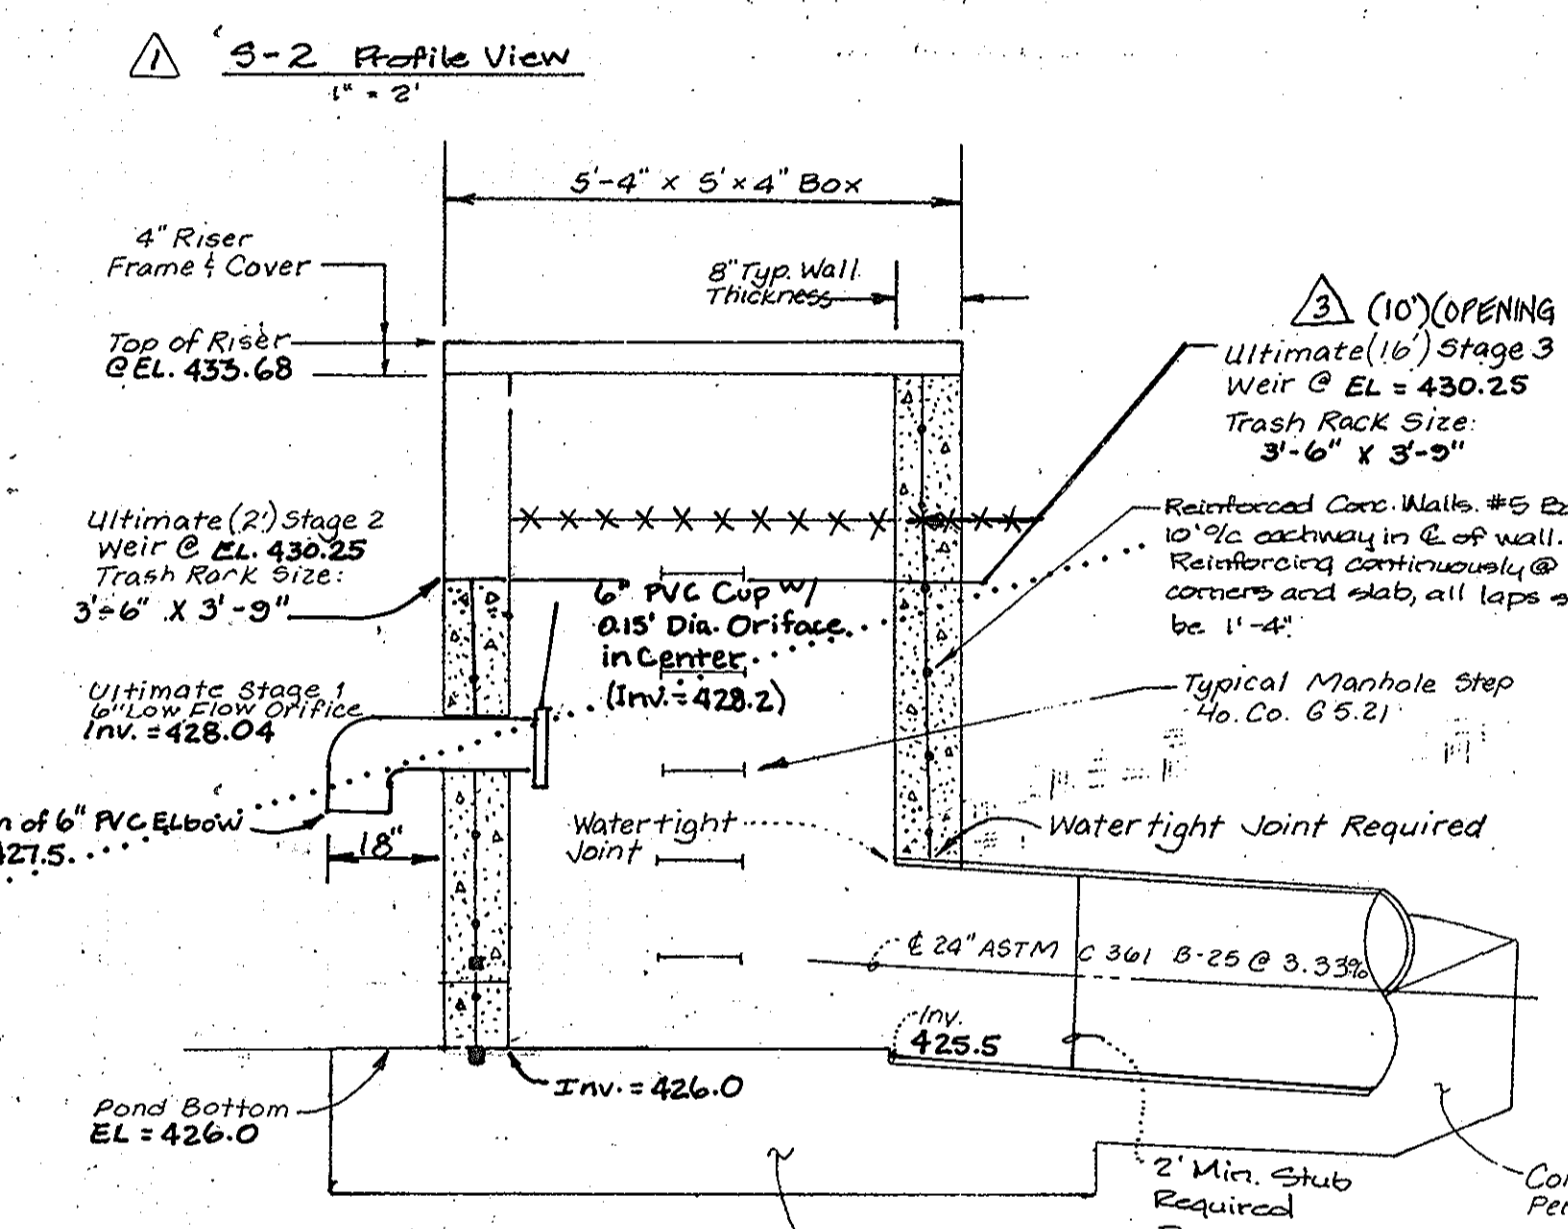 1 S-2 Profile View
1" = 2'
5'-4" x 5'x4" Box
4" Riser
Frame & Cover
8" Typ. Wall
Thickness
Top of Riser
@ EL. 433.68
3 (10')(OPENING
Ultimate (16') Stage 3
Weir @ EL = 430.25
Trash Rack Size:
3'-6" X 3'-9"
Ultimate (2') Stage 2
Weir @ EL. 430.25
Trash Rack Size:
3'-6" X 3'-9"
Reinforced Conc. Walls. #5
10" o/c eachway in ℄ of wall.
Reinforcing continuously @
corners and slab, all laps
be 1'-4"
6" PVC Cup w/
0.15' Dia. Oriface
in Center
(Inv. = 428.2)
Ultimate Stage 1
6" Low Flow Orifice
Inv. = 428.04
Typical Manhole Step
Ho. Co. G 5.21
of 6" PVC Elbow
427.5
18"
Watertight
Joint
Watertight Joint Required
℄ 24" ASTM C 361 B-25 @ 3.33%
Inv.
425.5
Inv. = 426.0
Pond Bottom
EL = 426.0
2' Min. Stub
Required